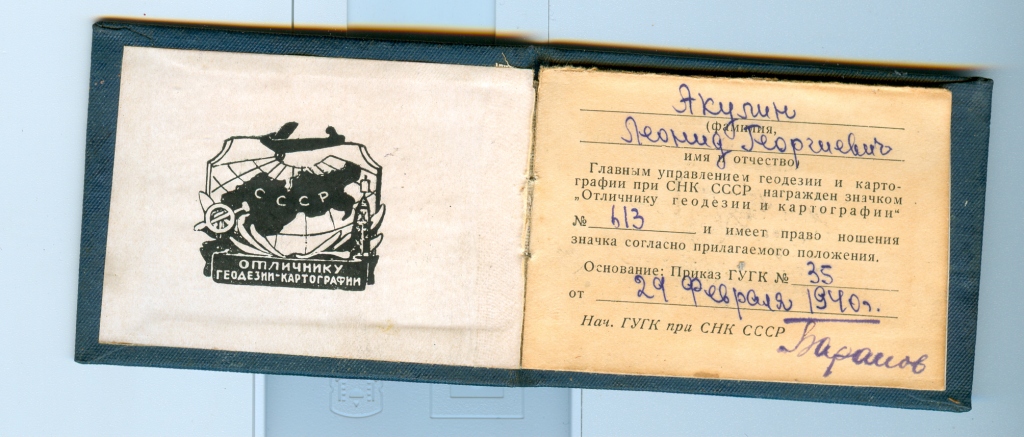 СССР
ОТЛИЧНИКУ
ГЕОДЕЗИИ-КАРТОГРАФИИ
Акулин
(фамилия,
Леонид Георгиевич
имя и отчество)
Главным управлением геодезии и карто-
графии при СНК СССР награжден значком
„Отличнику геодезии и картографии“
№ 613 и имеет право ношения
значка согласно прилагаемого положения.
Основание: Приказ ГУГК № 35
от 29 февраля 1940г.
Нач. ГУГК при СНК СССР
Баранов